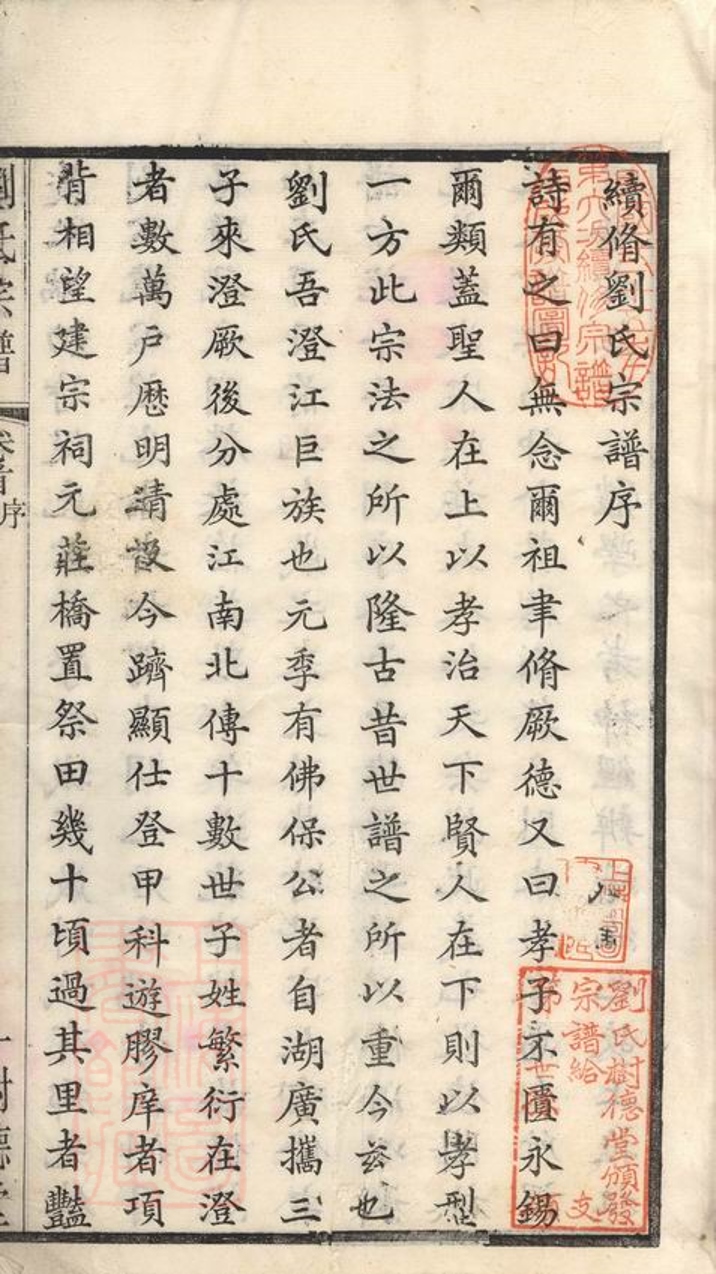 續脩劉氏宗譜序
詩有之曰無念爾祖聿脩厥德又曰孝子不匱永錫
爾類蓋聖人在上以孝治天下賢人在下則以孝型
一方此宗法之所以隆古昔世譜之所以重今玆也
劉氏吾澄江巨族也元季有佛保公者自湖廣攜三
子來澄厥後分處江南北傳十數世子姓繁衍在澄
者數萬戶歷明清設今躋顯仕登甲科遊膠庠者項
背相望建宗祠元莊橋置祭田幾十頃過其里者豔
劉氏宗譜
卷首序
一樹德堂
第六次續修宗譜
劉氏樹德堂頒發
宗譜給
支